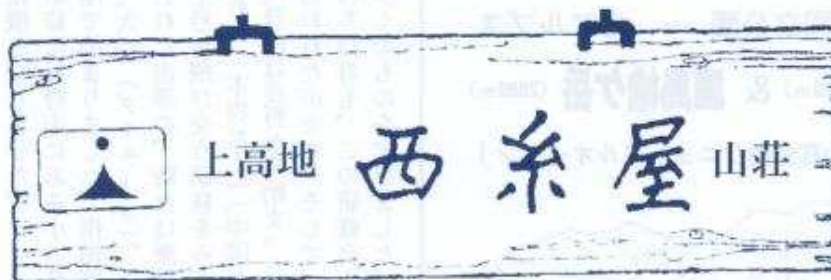 上高地 西糸屋 山荘